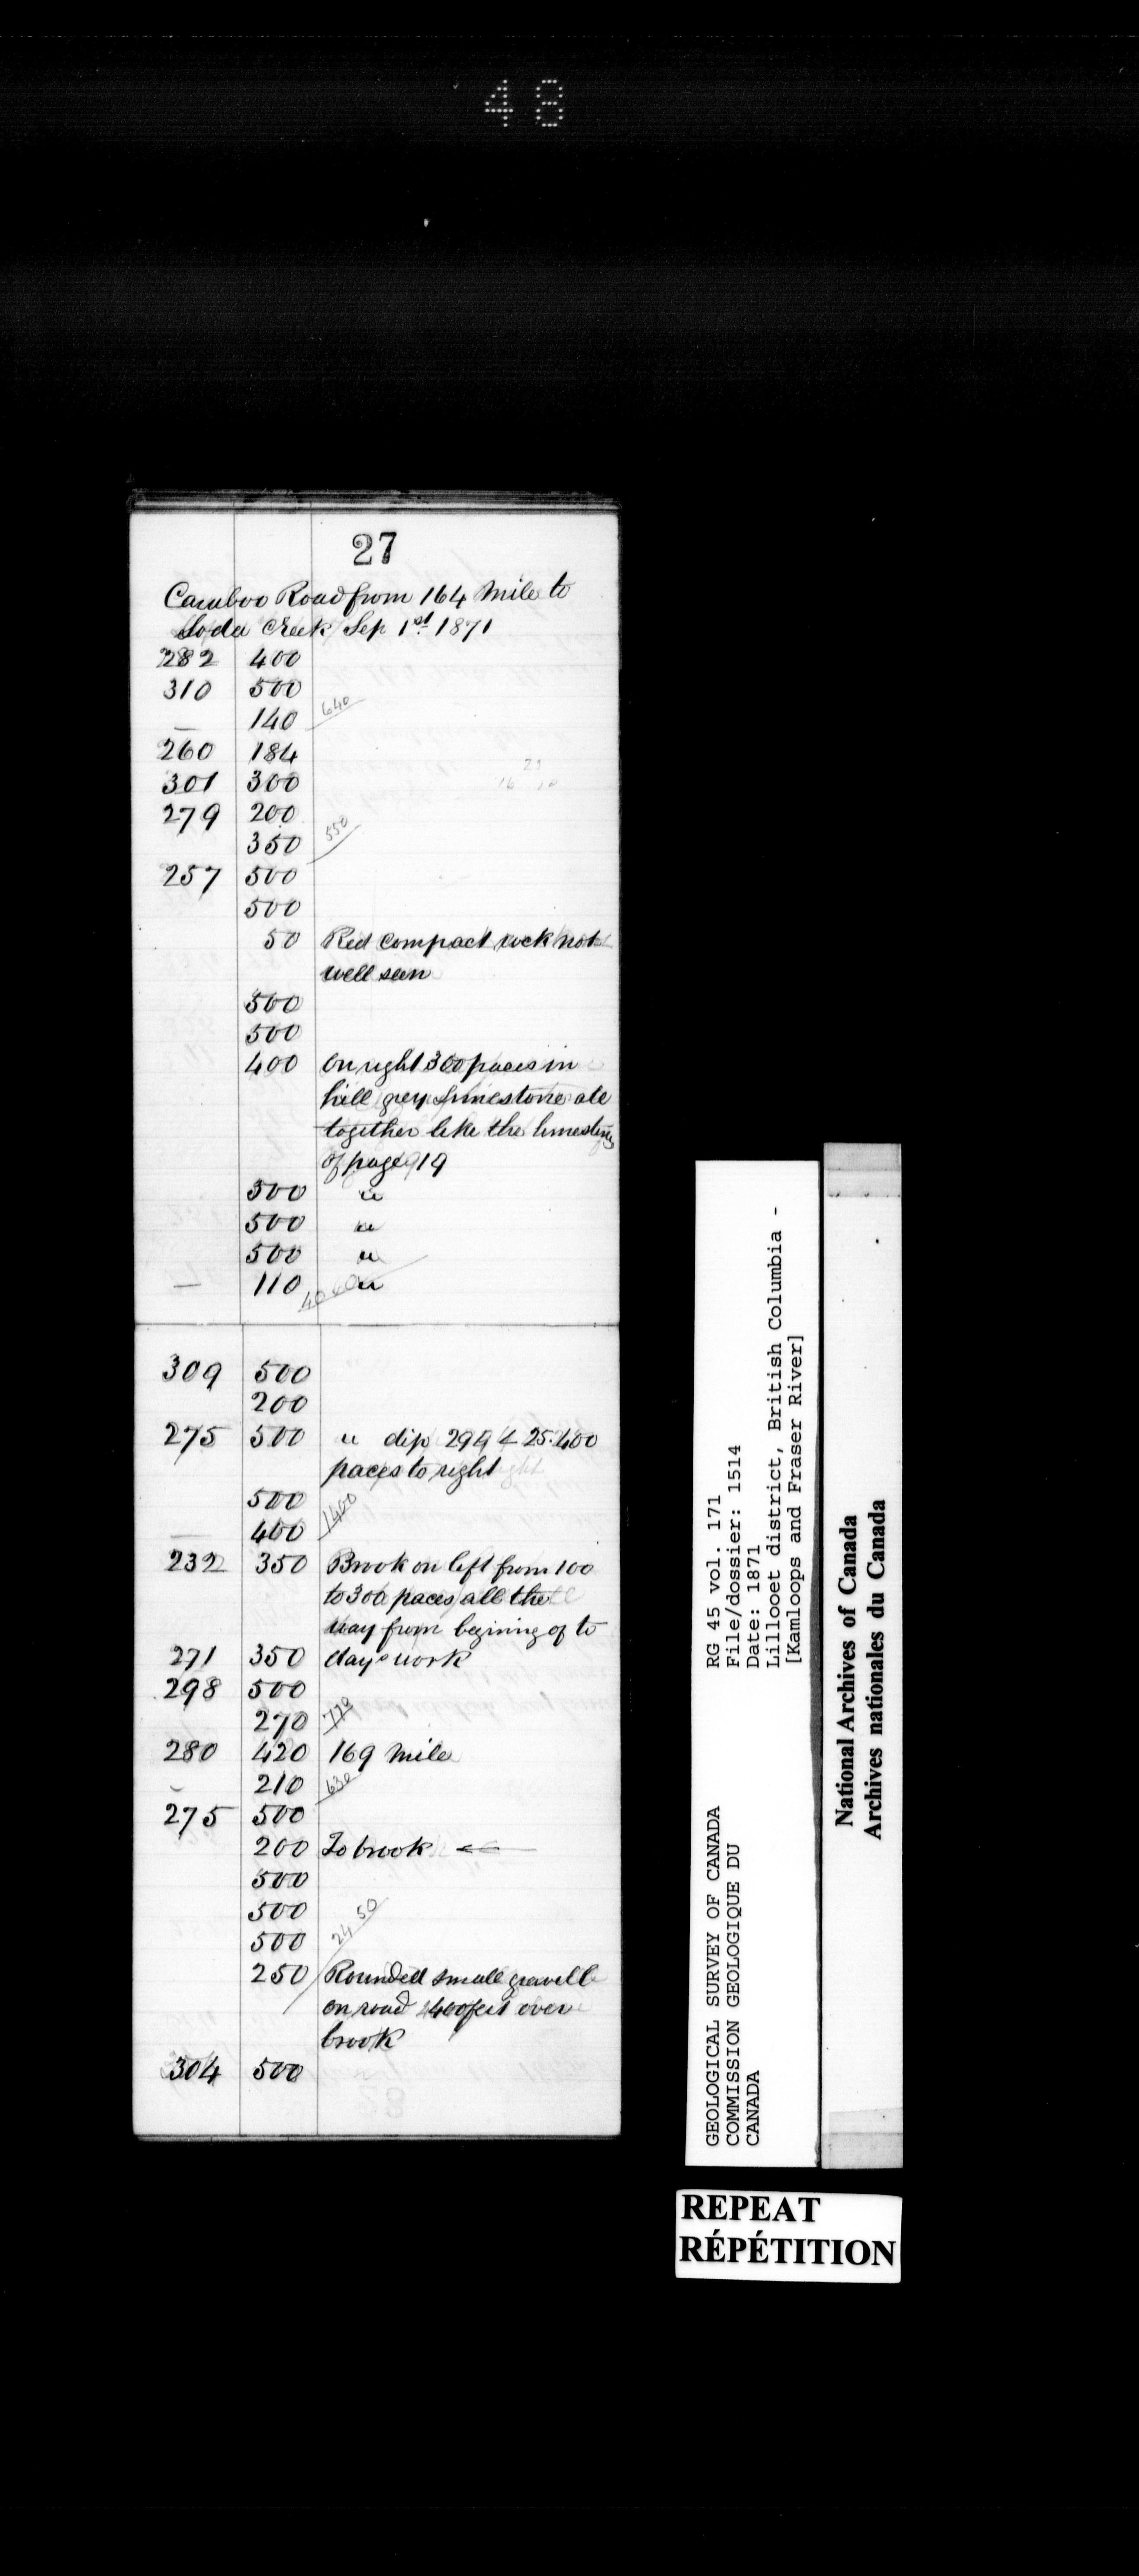 48
27
Cariboo Road from 164 Mile to
Soda Creek Sep 1st 1871
282 400
310 500
— 140 640
260 184
301 300
279 200
350 550
257 500
500
50 Red compact rock not
well seen
500
500
400 On right 300 paces in
hill grey limestone all
together like the limestone
of page 19
500 "
500 "
500 "
— 110 4060 "
309 500
200
275 500 " dip 294 < 25. 400
paces to right
500
— 400 1400
232 350 Brook on left from 100
to 300 paces all the
way from begining of to
271 350 days work
298 500
270 770
280 420 169 Mile
- 210 630
275 500
200 To brook ←
500
500
500 2450
250 Rounded small gravell
on road 400 feet over
brook
304 500
GEOLOGICAL SURVEY OF CANADA
COMMISSION GEOLOGIQUE DU
CANADA
RG 45 vol. 171
File/dossier: 1514
Date: 1871
Lillooet district, British Columbia -
[Kamloops and Fraser River]
National Archives of Canada
Archives nationales du Canada
REPEAT
RÉPÉTITION